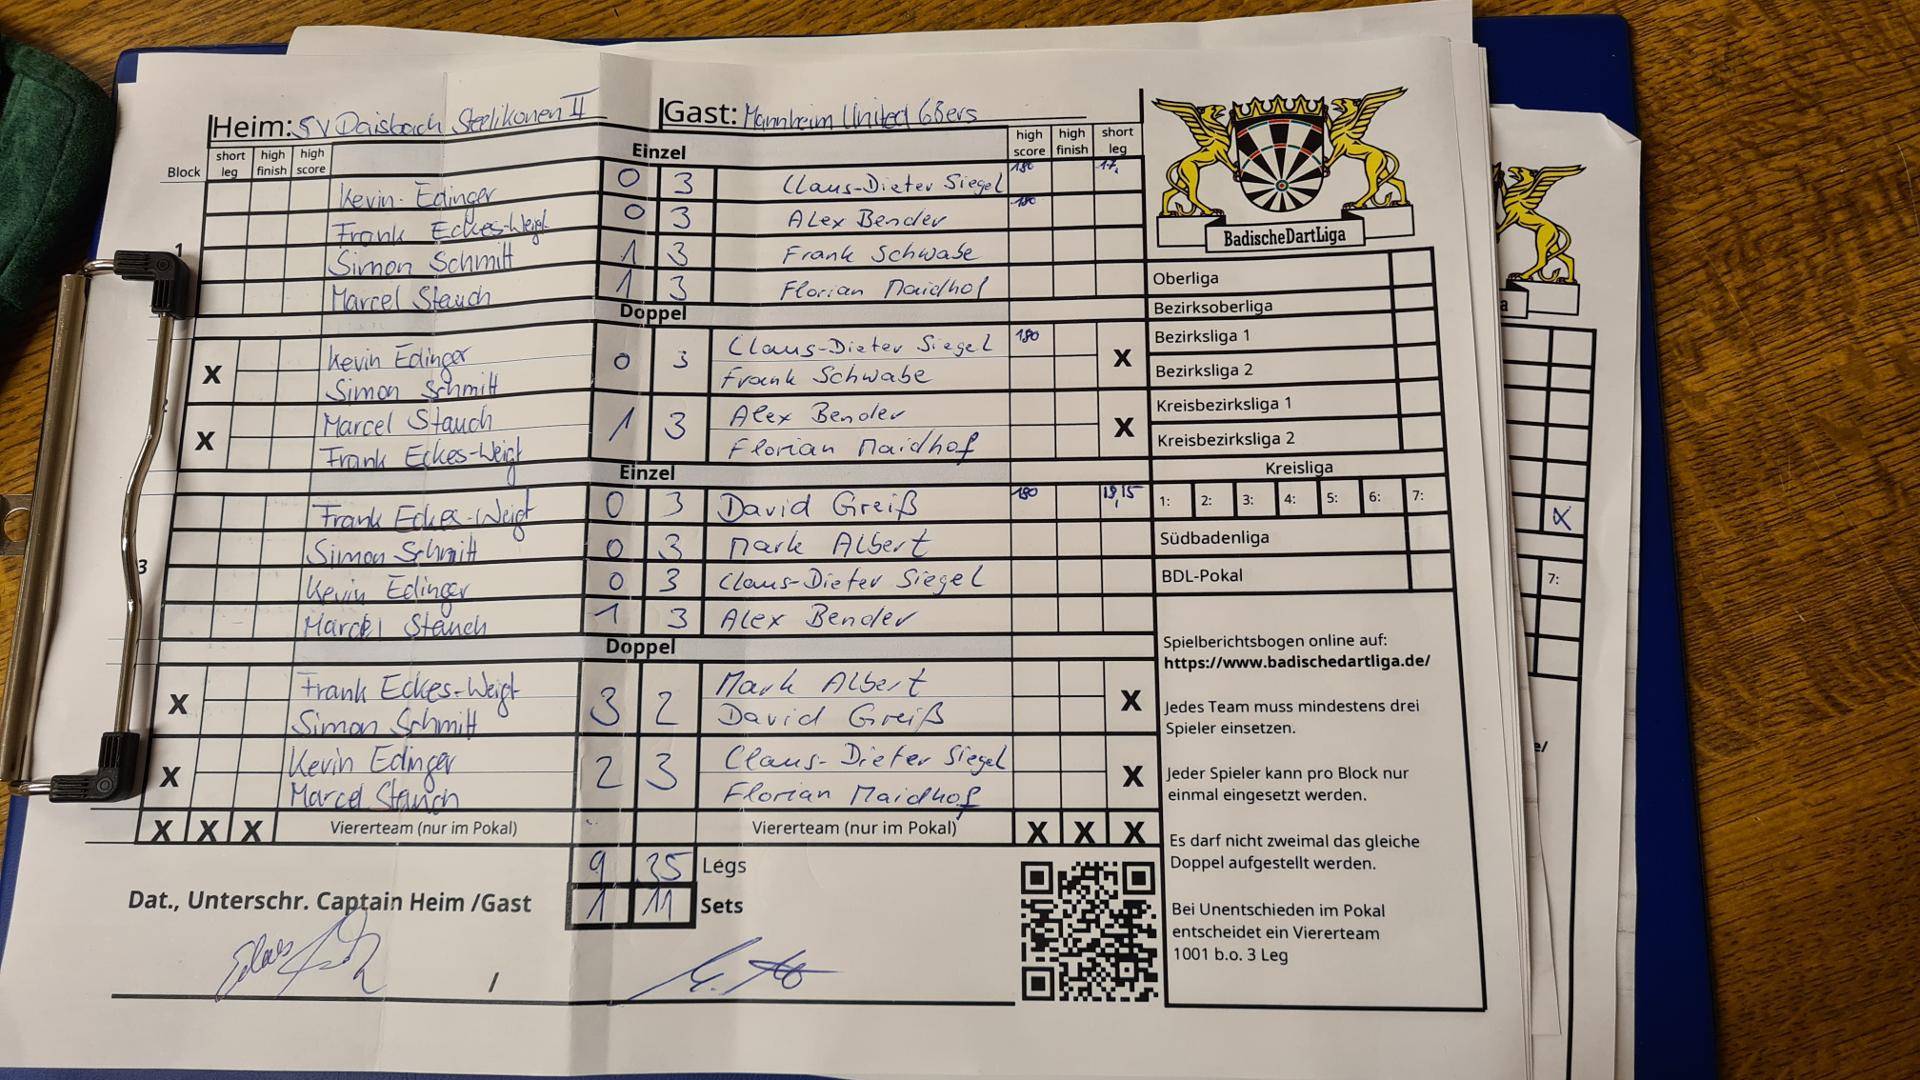 Heim: SV Daisbach Steelikonen II
Gast: Mannheim United 68ers
Block short leg high finish high score Einzel high score high finish short leg
1
Kevin Edinger 0 3 Claus-Dieter Siegel 180 17,
Frank Eckes-Weigt 0 3 Alex Bender 180
Simon Schmitt 1 3 Frank Schwabe
Marcel Stauch 1 3 Florian Maidhof
Doppel
X Kevin Edinger 0 3 Claus-Dieter Siegel 180 X
Simon Schmitt Frank Schwabe
X Marcel Stauch 1 3 Alex Bender X
Frank Eckes-Weigt Florian Maidhof
Einzel
3
Frank Eckes-Weigt 0 3 David Greiß 180 18, 15
Simon Schmitt 0 3 Mark Albert
Kevin Edinger 0 3 Claus-Dieter Siegel
Marcel Stauch 1 3 Alex Bender
Doppel
X Frank Eckes-Weigt 3 2 Mark Albert X
Simon Schmitt David Greiß
X Kevin Edinger 2 3 Claus-Dieter Siegel X
Marcel Stauch Florian Maidhof
X X X Viererteam (nur im Pokal) Viererteam (nur im Pokal) X X X
9 35 Legs
1 11 Sets
Dat., Unterschr. Captain Heim /Gast
/
BadischeDartLiga
Oberliga
Bezirksoberliga
Bezirksliga 1
Bezirksliga 2
Kreisbezirksliga 1
Kreisbezirksliga 2
Kreisliga
1: 2: 3: 4: 5: 6: 7:
Südbadenliga
BDL-Pokal
Spielberichtsbogen online auf:
https://www.badischedartliga.de/
Jedes Team muss mindestens drei
Spieler einsetzen.
Jeder Spieler kann pro Block nur
einmal eingesetzt werden.
Es darf nicht zweimal das gleiche
Doppel aufgestellt werden.
Bei Unentschieden im Pokal
entscheidet ein Viererteam
1001 b.o. 3 Leg
a
X
7:
e/